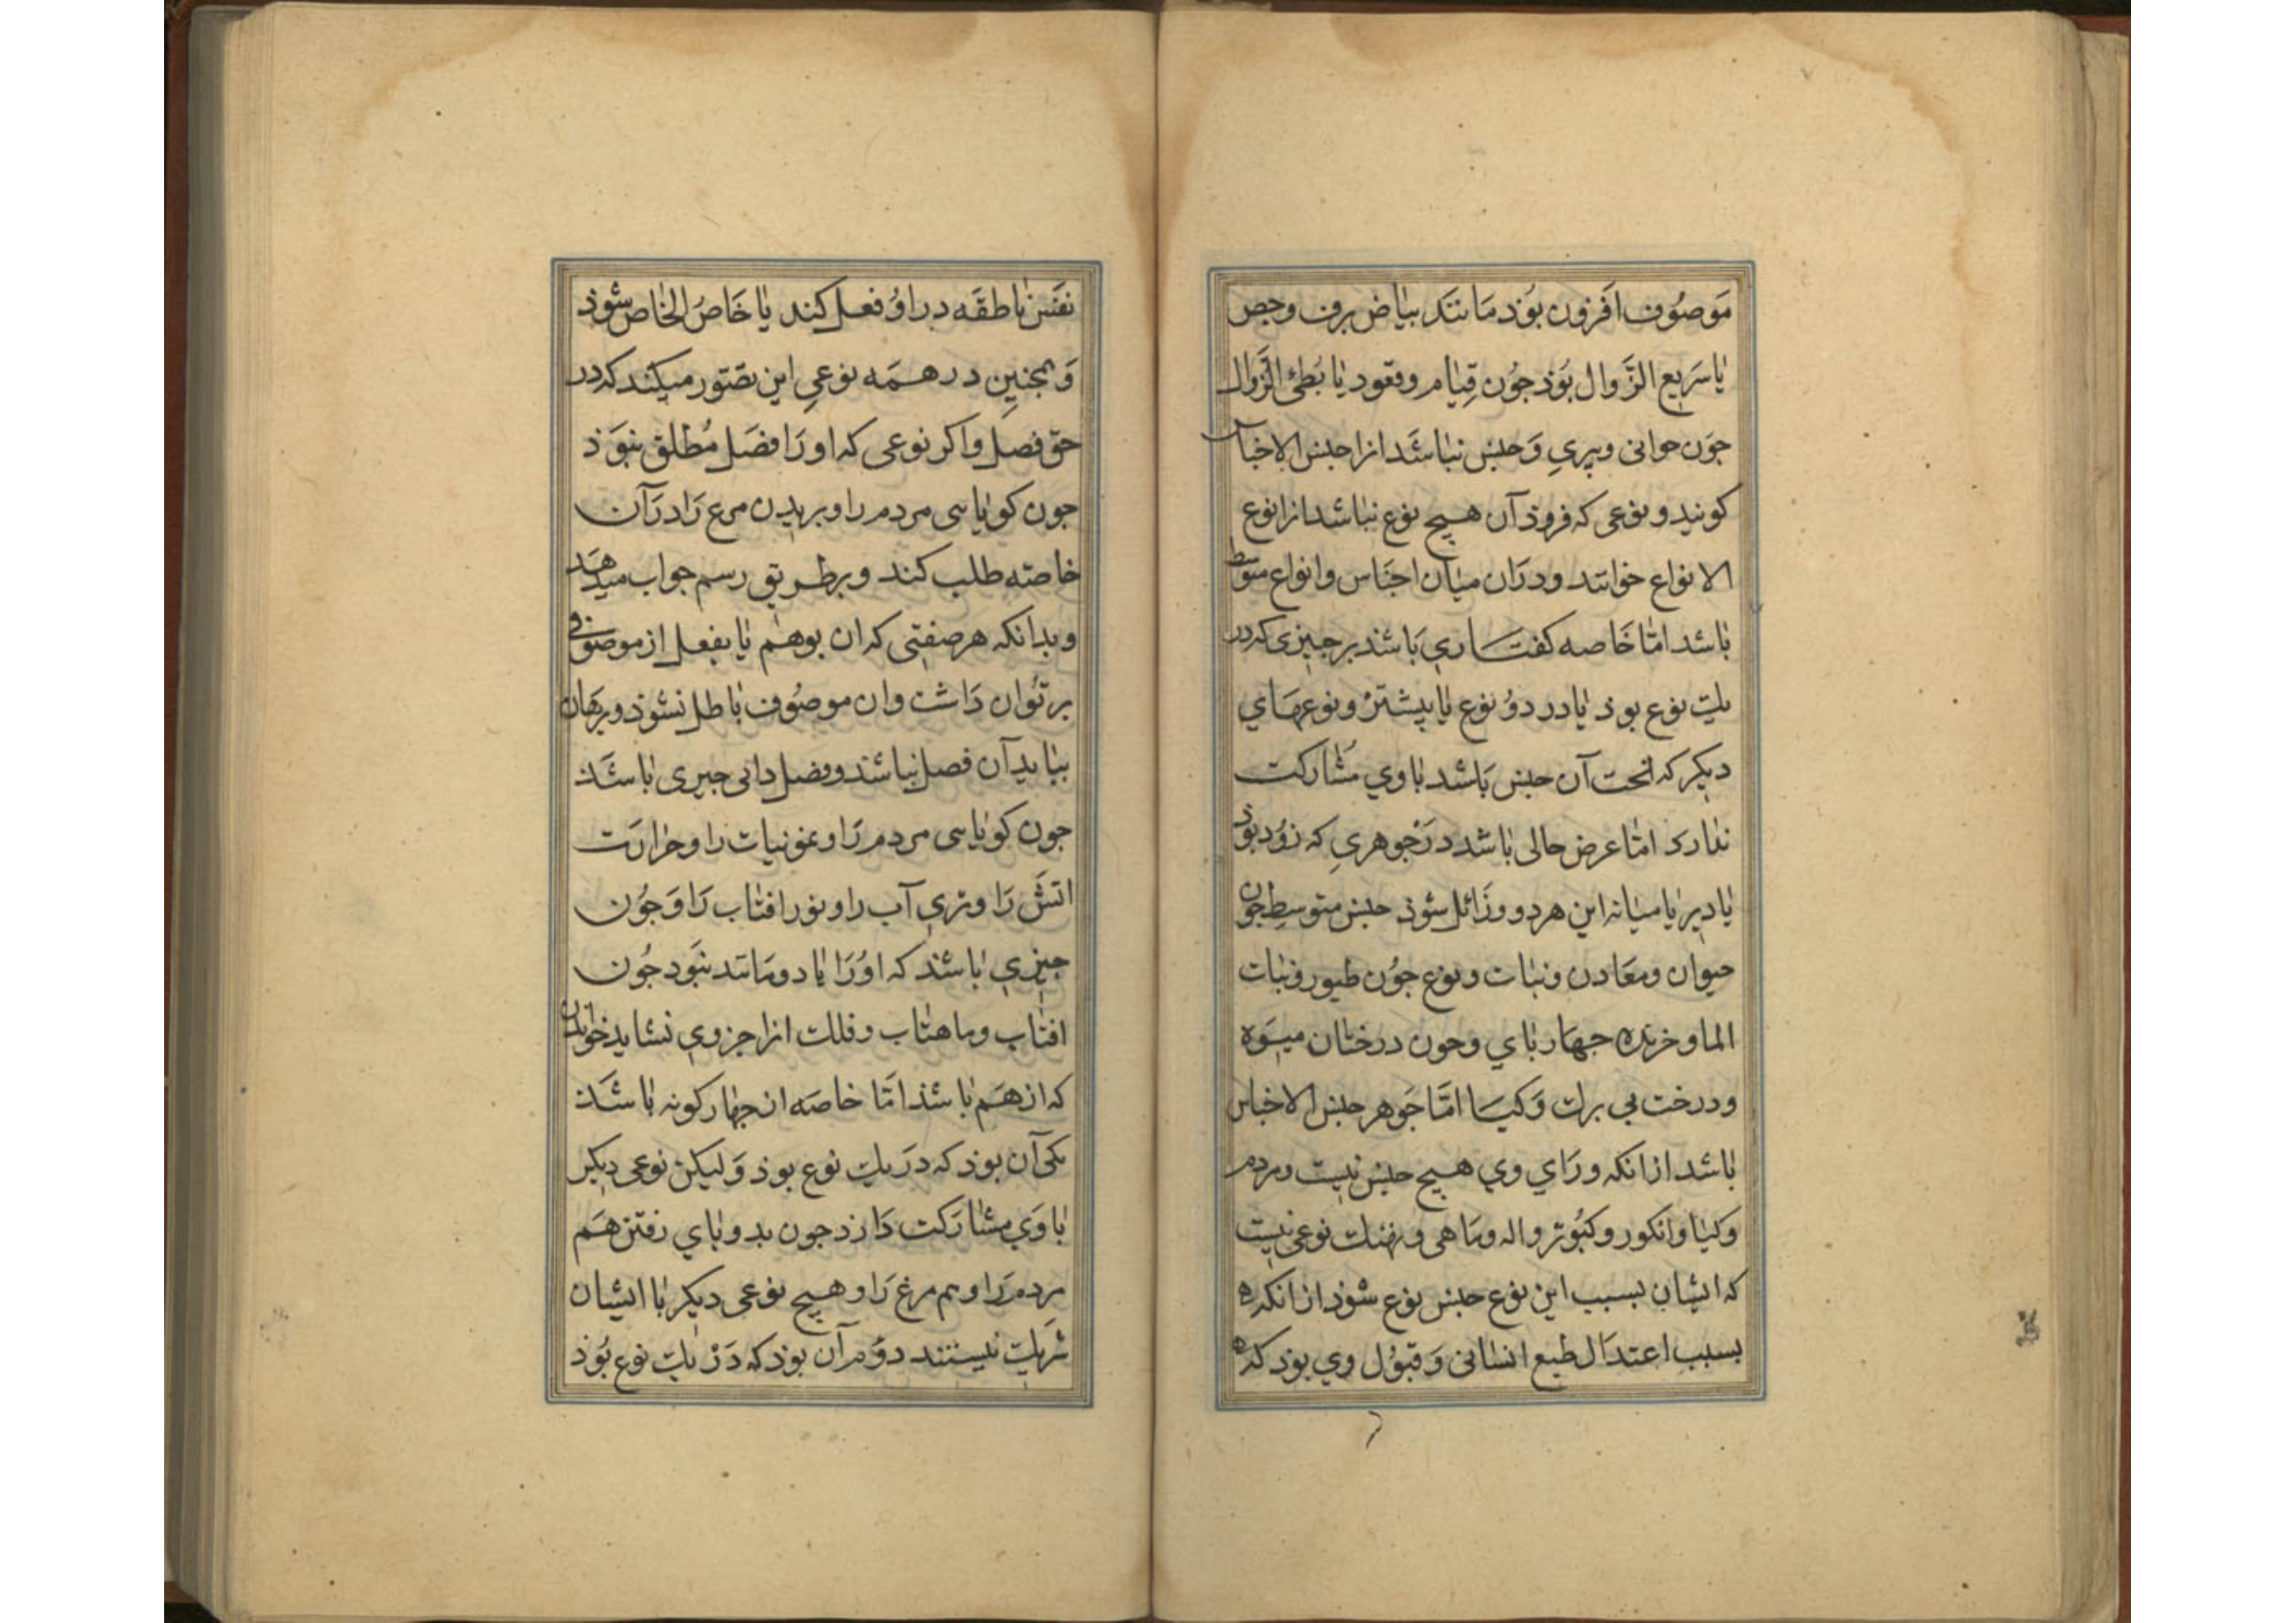 مَوصُوف افزون بوَذ مَانند بیاض برف وجص
یا سَریع الزَّوال بُوَذ جُون قِیام وقعود یا بُطئ الزَّوال
جوَن جوانی وپیریِ وَجنس نباشَد انرا جنس الاجناس
کویند ونوعی که فروذ آن هیچ نوع نباشد انرا نوع
الانواع خوانند ودرَان میان اجنَاس وانواع متوسط
باشد امّا خَاصه کفتاری بَاشد بر جیزی که در
یك نوع بوذ یا در دوُ نوع یا بیشترْ ونوعهَاي
دیکر که تحت آن جنس بَاشد باوي مشَارکت
ندارد امّا عرض حالی باشد درَجوهريِ که زوُد بوذ
یا دیر یا میانه این هر دو وزَائل شوذ جنس متوسطِ جون
حیوان ومعَادن ونبات ونوع جوُن طیور ونبات
الماو خزنده جهار باي وجون درختان میوَه
ودرخت بی برك وَکیا امّا جَوهر جنس الاجناس
باشد ازانکه ورَاي وي هیچ جنس نیست ومردم
وَکیا وانکور وکبُوتر واله وماهی ونهنك نوعی نیست
که ایشان بسبب این نوع جنس نوع شوذ ازانکه
بسبب اعتدَال طبع انسانی وَقبوُل وي بوذ که
نفَس ناطقَه در اوُ فعل کند یا خَاصُ الخاص شوذ
وَهمجنینِ در همَه نوعیِ این تصَوّر میکند که در
حق فصَل واکر نوعی که او رَا فصَل مُطلق نبوَذ
جون کویایی مردم را وبریدن مرع رَا درَآن
خاصّه طلب کند وبر طریق رسم جواب میدهَد
وبدانکه هر صفتی که ان بوهم یا بفعل از موصوفی
بر تُوان دَاشت وان موصُوف باطل نشوذ وبرهان
بباید آن فصل نباشد وفصل ذاتی جیزی باشَذ
جون کویایی مردم رَا ونمو نبات را وحرارَت
اتش رَا وتريِ آب را ونور افتاب رَا وَجوُن
جیزيِ باشذ که اوُرَا یا دو مانند نبَود جُون
افتاب وماهتاب وفلك انرا جزوي نشاید خواندن
که ازهَم باشذ امّا خاصَه ان جهار کونه باشَذ
یکی آن بوذ که درَ یك نوع بوذ وَلیکن نوعی دیکر
باوَي مشارکت دَارد جون بدوباي رفتن هَم
مردم رَا وهم مرغ رَا وهیچ نوعی دیکر با ایشان
شریك نیستند دوُم آن بوذ که دَرْ یك نوع بُوَذ